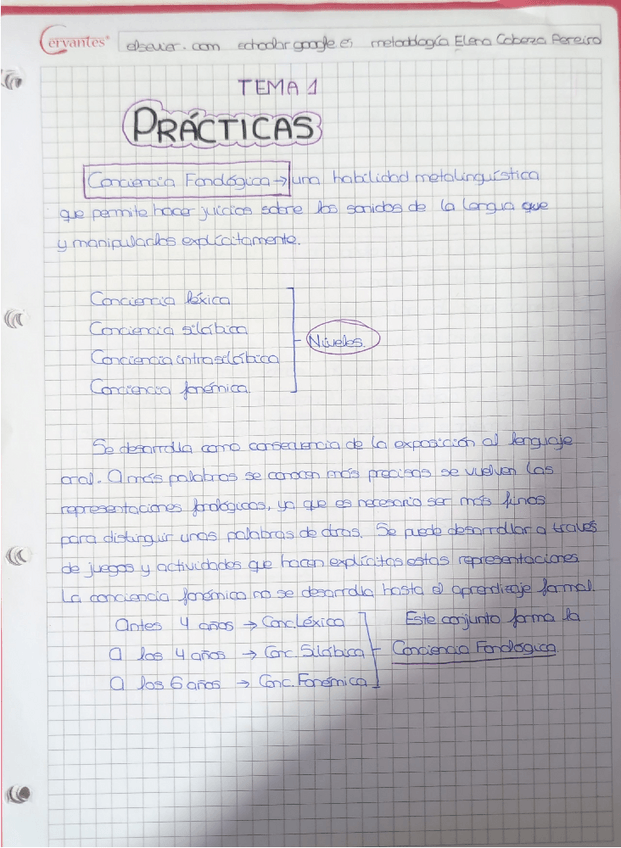 Cervantes® elsevier.com echador google es metodología Elena Cabeza Pereiro
TEMA 1
PRÁCTICAS
Conciencia Fonológica → una habilidad metalinguística
que permite hacer juicios sobre los sonidos de la lengua que
y manipularlos explícitamente.
Conciencia léxica
Conciencia silábica
Niveles
Conciencia intrasilábica
Conciencia fonémica
Se desarrolla como consecuencia de la exposición al lenguaje
oral. A más palabras se conocen más precisas se vuelven las
representaciones fonológicas, ya que es necesario ser más finos
para distinguir unas palabras de otras. Se puede desarrollar a través
de juegos y actividades que hacen explícitas estas representaciones
La conciencia fonémica no se desarrolla hasta el aprendizaje formal.
Antes 4 años → Conc.Léxica Este conjunto forma la
A los 4 años → Conc. Silábica Conciencia Fonológica
A los 6 años → Conc. Fonémica